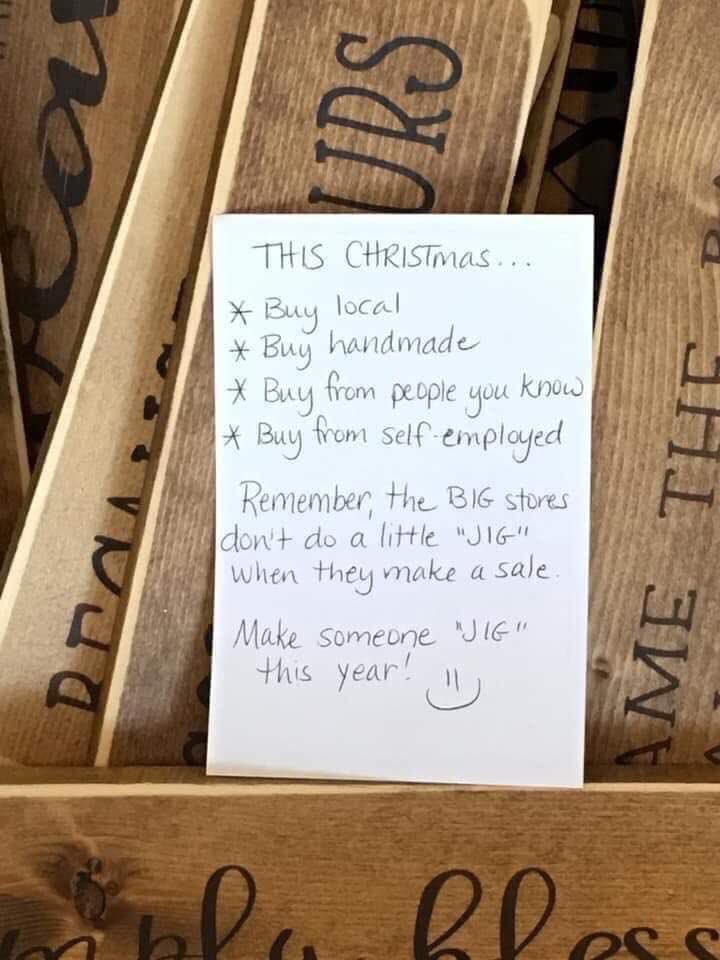 URS
THIS CHRISTmas...
* Buy local
* Buy handmade
* Buy from people you know
* Buy from self-employed
Remember, the BIG stores
don't do a little "JIG"
when they make a sale.
Make someone "JIG"
this year!
AME THE